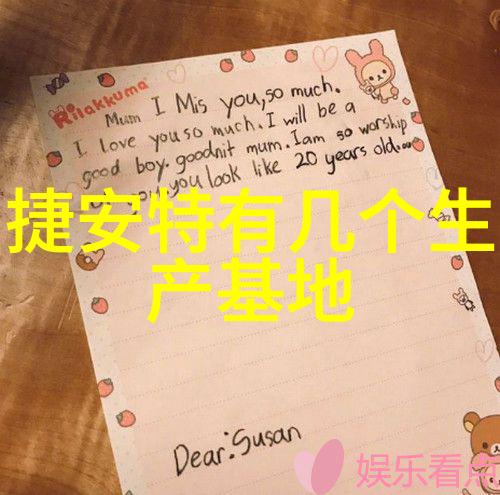 Rilakkuma
Mum I Mis you, so much.
I love you so much. I will be a
good boy. goodnit mum. I am so worship
you look like 20 years old.
捷安特有几个生
产基地
Dear: Susan
娱乐看点